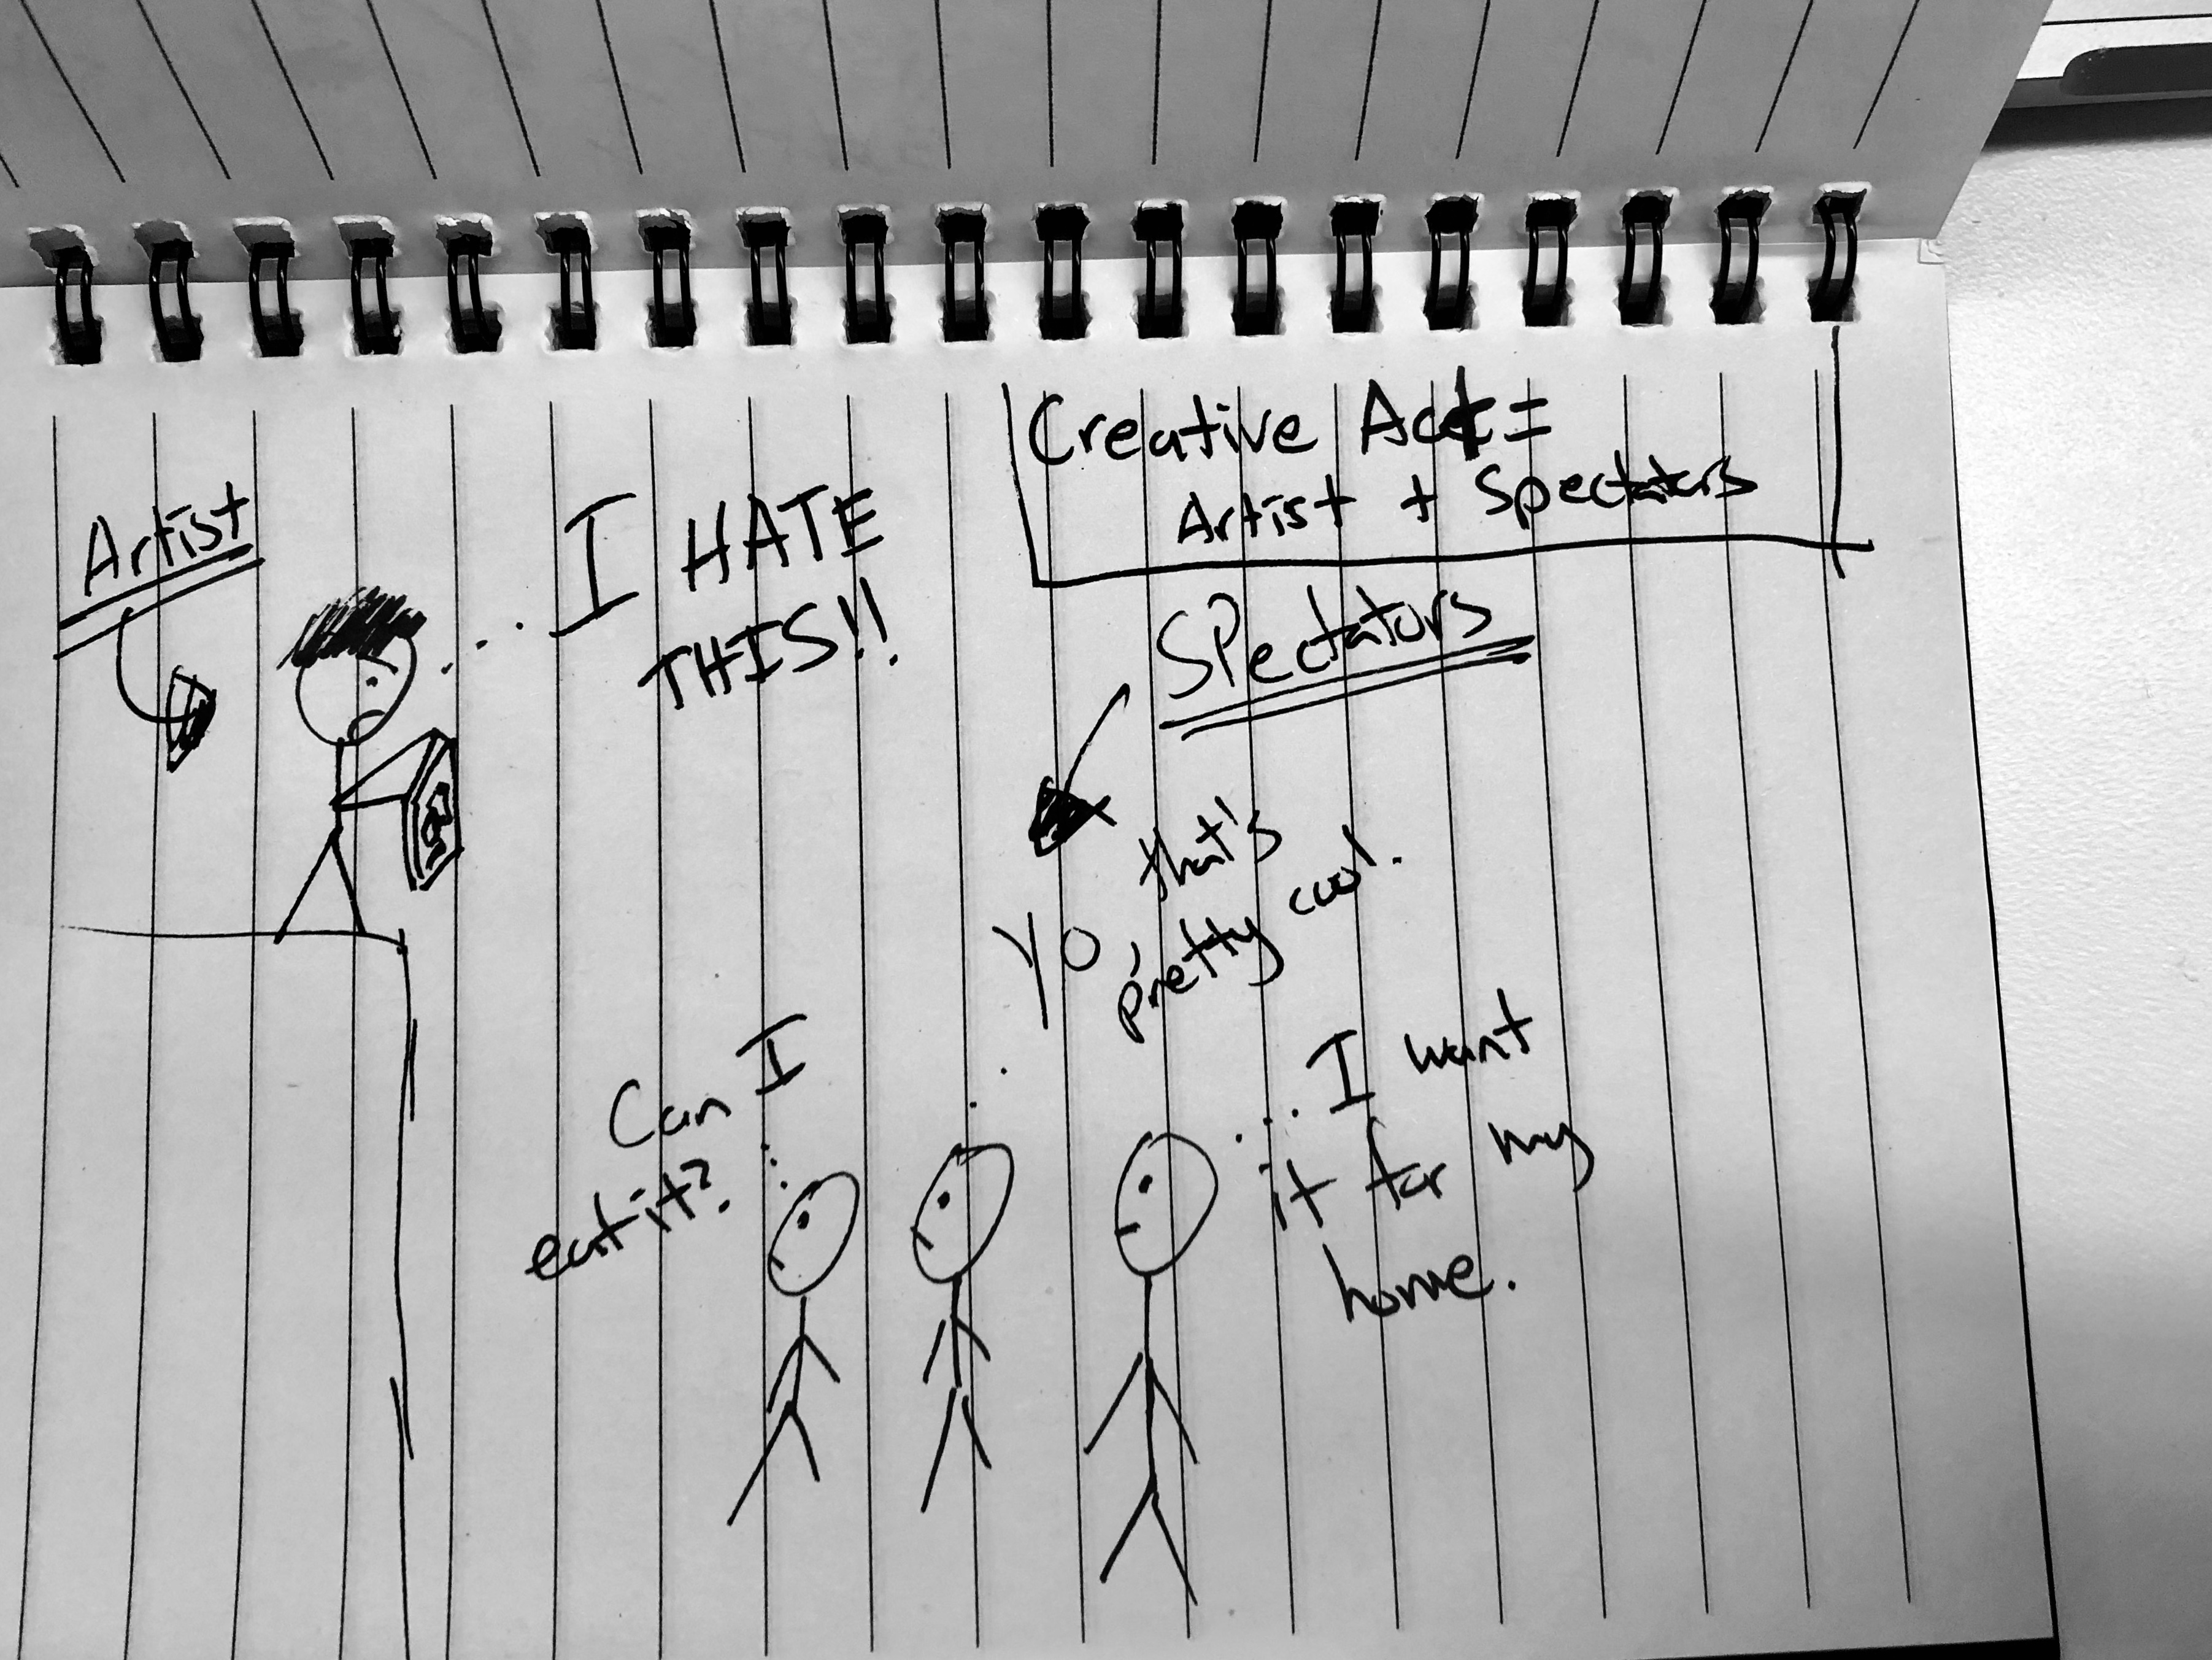 Creative Act =
Artist + Spectators
Artist
I HATE
THIS!!
SPectators
Yo, that's
pretty cool.
Can I
eat it?
I want
it for my
home.